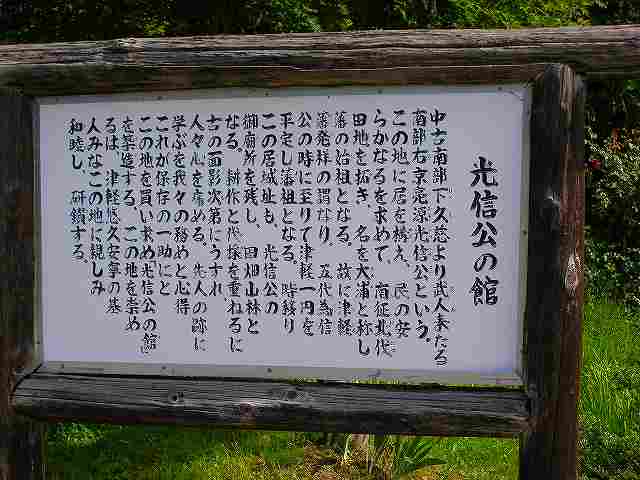 光信公の館
中古南部下久慈より武人来たる
南部右京亮源光信公という。
この地に居を構え、民の安
らかなるを求めて、南征北伐
田地を拓き、名を大浦と称し
藩の始祖となる。故に津軽
藩発祥の謂なり。五代為信
公の時に至りて津軽一円を
平定し藩祖となる。時移り
この居城址も、光信公の
御廟所を残し、田畑山林と
なる。耕作と代採を重ねるに
古の面影次第にうすれ
人々心を痛める。先人の跡に
学ぶを我々の務めと心得
これが保存の一助にと
この地を買い求め光信公の館
を築造する。この地を崇め
るは、津軽悠久安寧の基
人みなこの地に親しみ
和睦し、研鑽する。